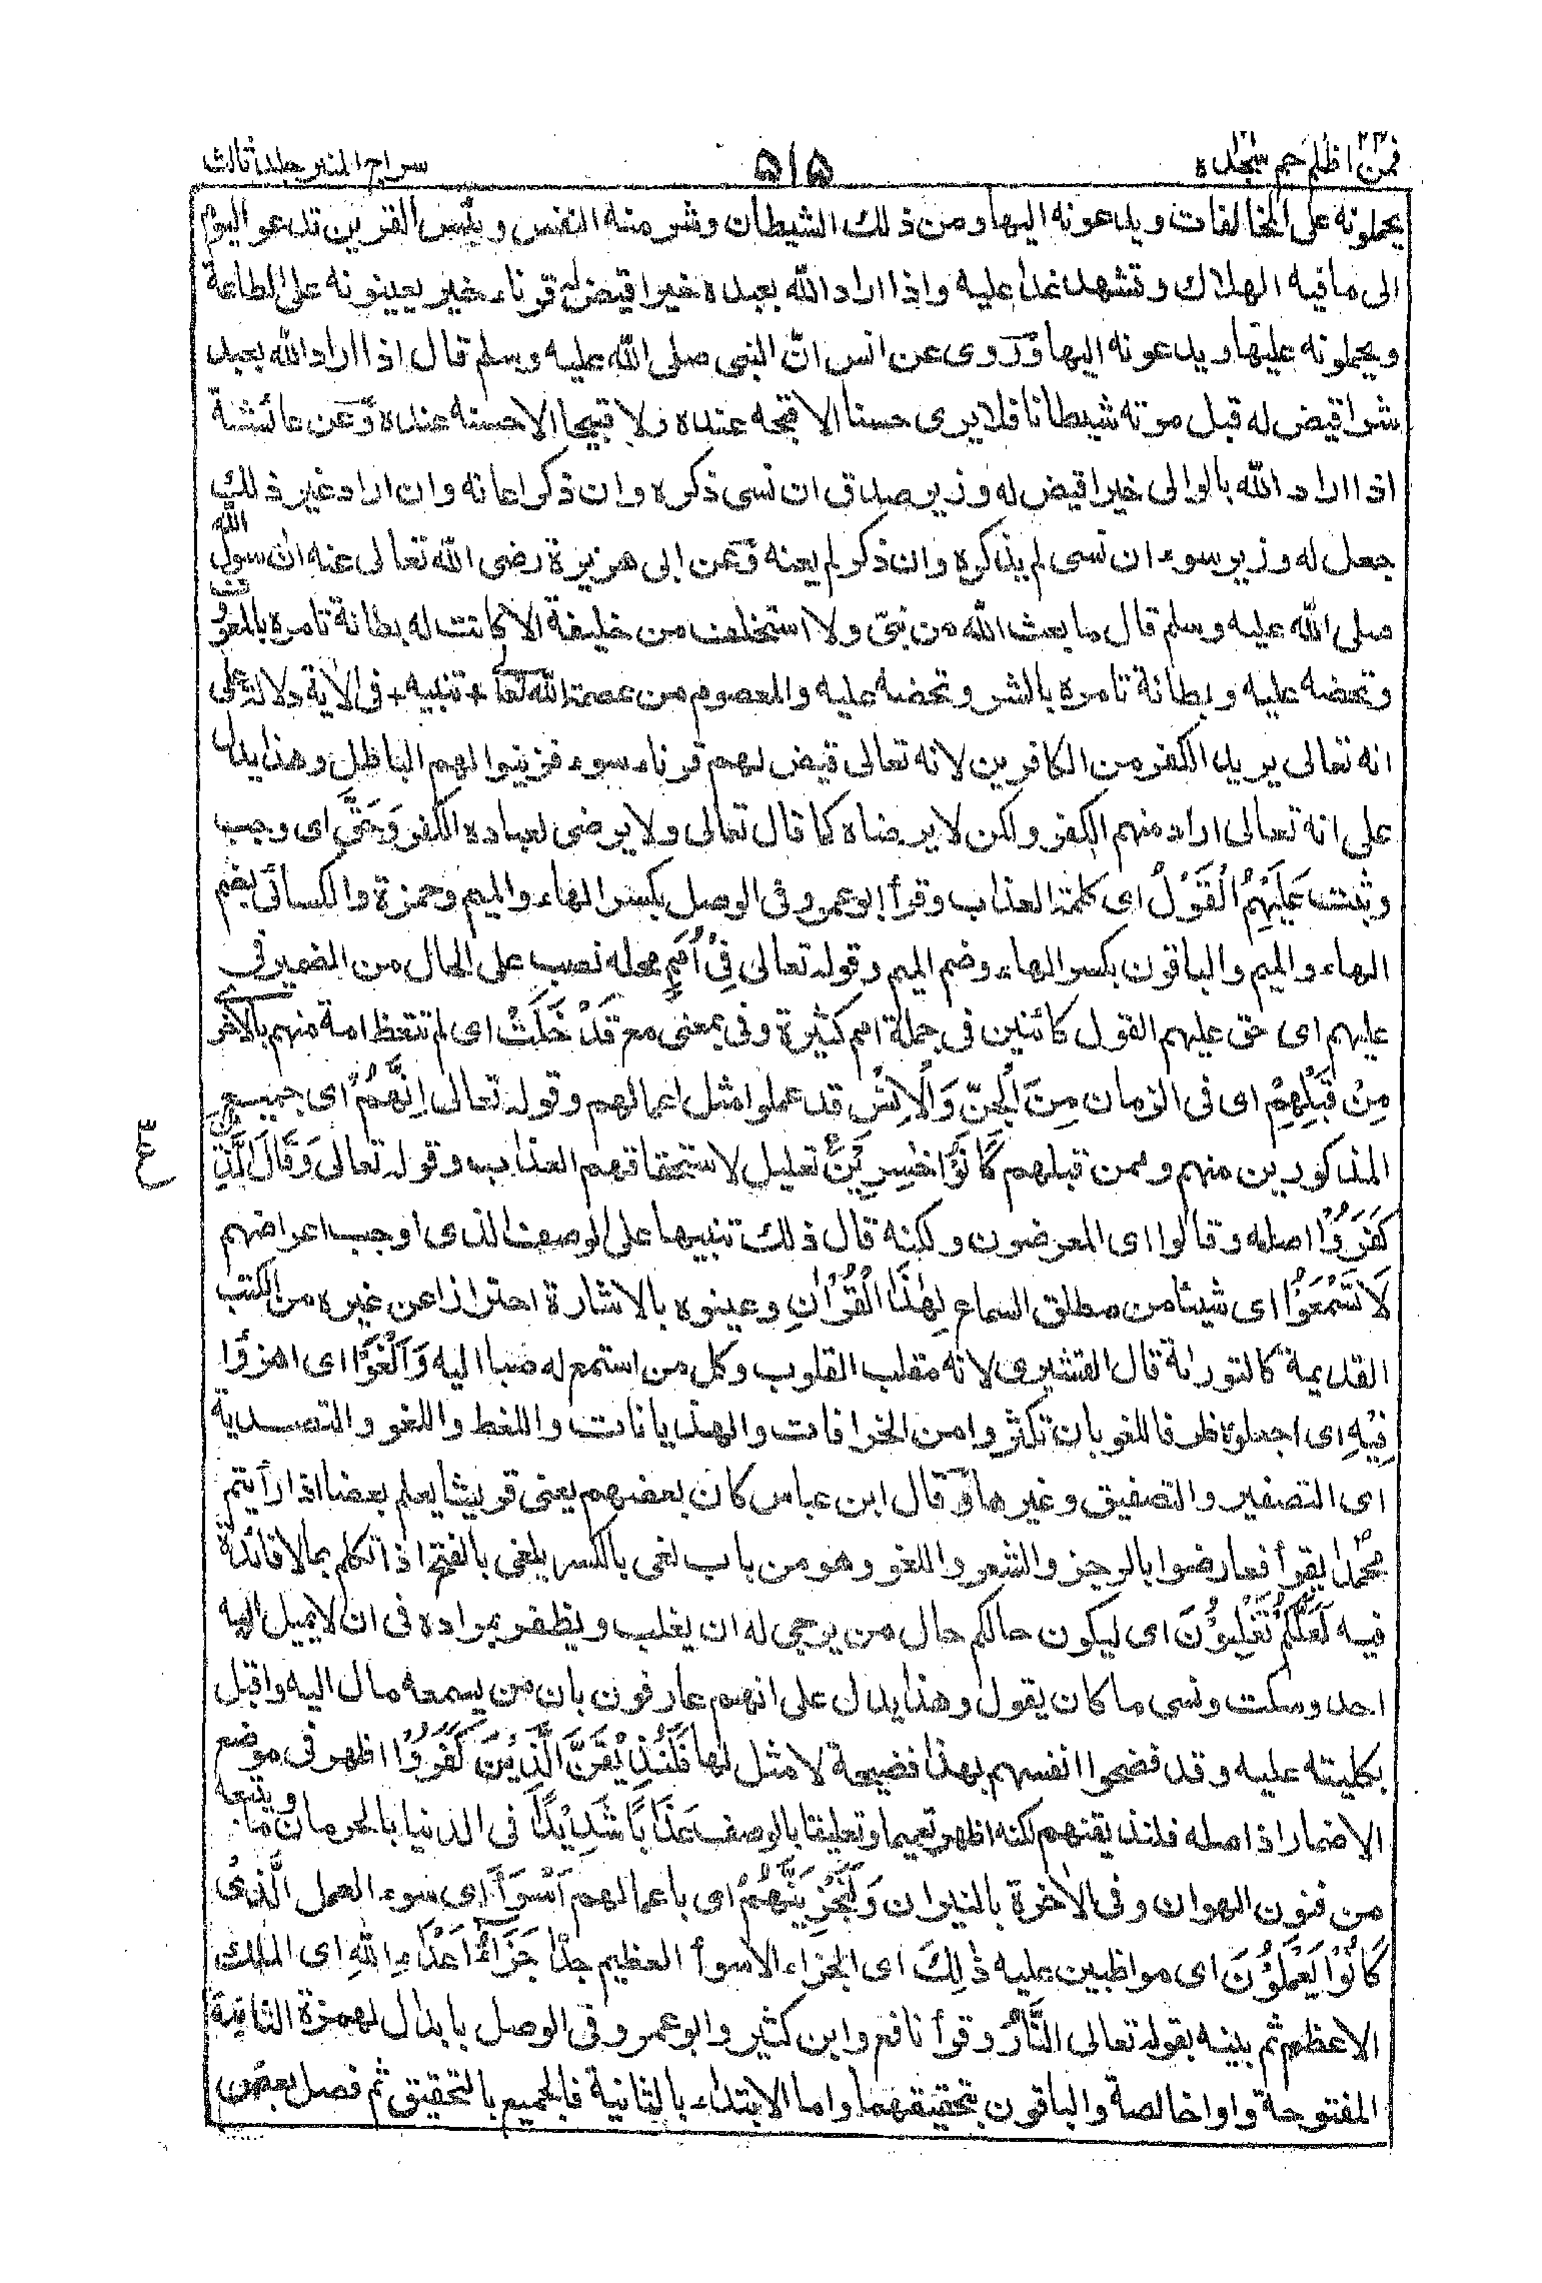 فمن اظلم حم سجدہ ۵۱۵ سراج المنیر جلد ثالث
يحملونه على المخالفات ويدعونه اليها ومن ذلك الشيطان وشر منه النفس وبئس القرين تدعو اليوم
الى ما فيه الهلاك وتشهد غدا عليه واذا اراد الله بعبده خيرا قيض له قرناء خير يعينونه على الطاعة
ويحملونه عليها ويدعونه اليها وروى عن انس ان النبى صلى الله عليه وسلم قال اذا اراد الله بعبد
شرا قيض له قبل موته شيطانا فلا يرى حسنا الا قبحه عنده ولا قبيحا الا حسنه عنده وعن عائشة
اذا اراد الله بالوالى خيرا قيض له وزير صدق ان نسى ذكره وان ذكر اعانه وان اراد غير ذلك
جعل له وزير سوء ان نسى لم يذكره وان ذكر لم يعنه وعن ابى هريرة رضى الله تعالى عنه ان رسول الله
صلى الله عليه وسلم قال ما بعث الله من نبى ولا استخلف من خليفة الا كانت له بطانة تامره بالمعروف
وتحضه عليه وبطانة تامره بالشر وتحضه عليه والمعصوم من عصمه الله تعالى + تنبيه + فى الاية دلالة على
انه تعالى يريد الكفر من الكافرين لانه تعالى قيض لهم قرناء سوء فزينوا لهم الباطل وهذا يدل
على انه تعالى اراد منهم الكفر ولكن لا يرضاه كما قال تعالى ولا يرضى لعباده الكفر وَحَقَّ اى وجب
وثبت عَلَيْهِمُ الْقَوْلُ اى كلمة العذاب وقرأ ابو عمرو فى الوصل بكسر الهاء والميم وحمزة والكسائى بضم
الهاء والميم والباقون بكسر الهاء وضم الميم وقوله تعالى فِىْ اُمَمٍ محله نصب على الحال من الضمير فى
عليهم اى حق عليهم القول كائنين فى جملة امم كثيرة وفى بمعنى مع قَدْ خَلَتْ اى لم تتعظ امة منهم بالاخرى
مِنْ قَبْلِهِمْ اى فى الزمان مِنَ الْجِنِّ وَالْاِنْسِ قد عملوا مثل اعمالهم وقوله تعالى اِنَّهُمْ اى جميع
المذكورين منهم وممن قبلهم كَانُوْا خٰسِرِيْنَ تعليل لاستحقاقهم العذاب وقوله تعالى وَقَالَ الَّذِيْنَ
كَفَرُوْا اصله وقالوا اى المعرضون ولكنه قال ذلك تنبيها على الوصف الذى اوجب اعراضهم
لَا تَسْمَعُوْا اى شيئا من مطلق السماع لِهٰذَا الْقُرْاٰنِ وعينوه بالاشارة احترازا عن غيره من الكتب
القديمة كالتوراة قال القشيرى لانه مقلب القلوب وكل من استمع له صبا اليه وَالْغَوْا اى اهزؤا
فِيْهِ اى اجعلوه ظرفا للغو بان تكثروا من الخرافات والهذيانات واللغط واللغو والتصدية
اى التصفير والتصفيق وغيرها وقال ابن عباس كان بعضهم يعنى قريشا يعلم بعضا اذا رأيتم
محمدا يقرأ فعارضوا بالرجز والشعر واللغو وهو من باب لغى بالكسر يلغى بالفتح اذا تكلم بما لا فائدة
فيه لَعَلَّكُمْ تَغْلِبُوْنَ اى ليكون حالكم حال من يرجى له ان يغلب ويظفر بمراده فى ان لا يميل اليه
احد وسكت ونسى ما كان يقول وهذا يدل على انهم عارفون بان من يسمعه مال اليه واقبل
بكليته عليه وقد فضحوا انفسهم بهذا فضيحة لا مثل لها فَلَنُذِيْقَنَّ الَّذِيْنَ كَفَرُوْا اظهر فى موضع
الاضمار اذ اصله فلنذيقنهم لكنه اظهر تعميما وتعليقا بالوصف عَذَابًا شَدِيْدًا فى الدنيا بالحرمان وما يتبعه
من فنون الهوان وفى الاخرة بالنيران وَلَنَجْزِيَنَّهُمْ اى باعمالهم اَسْوَاَ اى سوء العمل الَّذِىْ
كَانُوْا يَعْمَلُوْنَ اى مواظبين عليه ذٰلِكَ اى الجزاء الاسوأ العظيم جدا جَزَآءُ اَعْدَآءِ اللهِ اى الملك
الاعظم ثم بينه بقوله تعالى النَّارُ وقرأ نافع وابن كثير وابو عمرو فى الوصل بابدال لهمزة الثانية
المفتوحة واوا خالصة والباقون بتحقيقهما واما الابتداء بالثانية فالجميع بالتحقيق ثم فصل بعض
ع